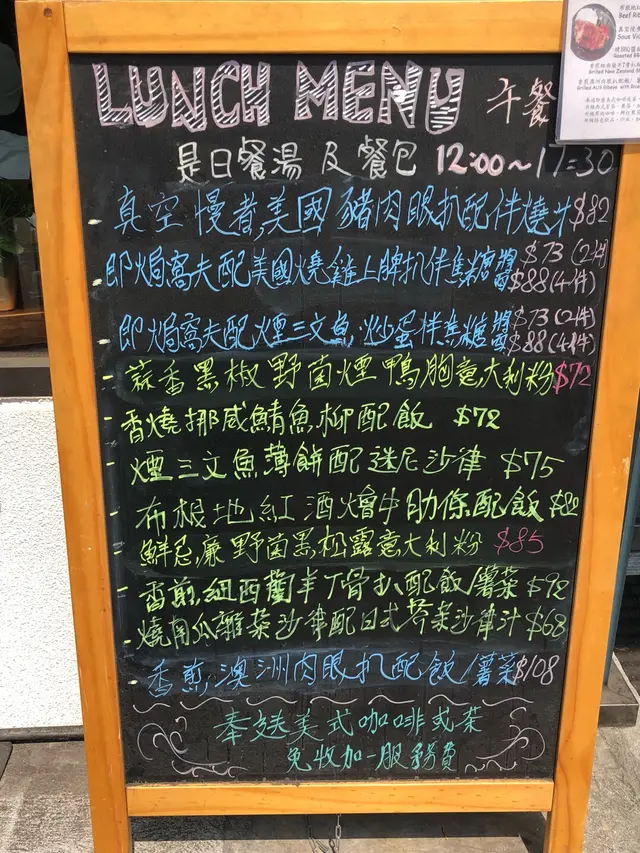 LUNCH MENU 午餐
是日餐湯 及 餐包 12:00～17:30
真空慢煮,美國豬肉眼扒配伴燒汁 $82
即焗窩夫配美國燒雞上脾扒伴焦糖醬 $73 (2件)
$88 (4件)
即焗窩夫配煙三文魚,炒蛋伴焦糖醬 $73 (2件)
$88 (4件)
- 蒜香黑椒野菌煙鴨胸意大利粉 $72
- 香燒挪威鯖魚柳配飯 $72
- 煙三文魚薄餅配迷尼沙律 $75
- 布根地紅酒燴牛肋條配飯 $82
- 鮮忌廉野菌黑松露意大利粉 $85
- 香煎,紐西蘭羊T骨扒配飯/薯菜 $92
- 燒南瓜雜菜沙律配日式 沙律汁 $68
- 香煎,澳洲肉眼扒配飯/薯菜 $108
奉送美式咖啡或茶
免收加一服務費
Beef Rib
Sous Vid
Grilled New Zealand
Grilled AUS Ribeye with